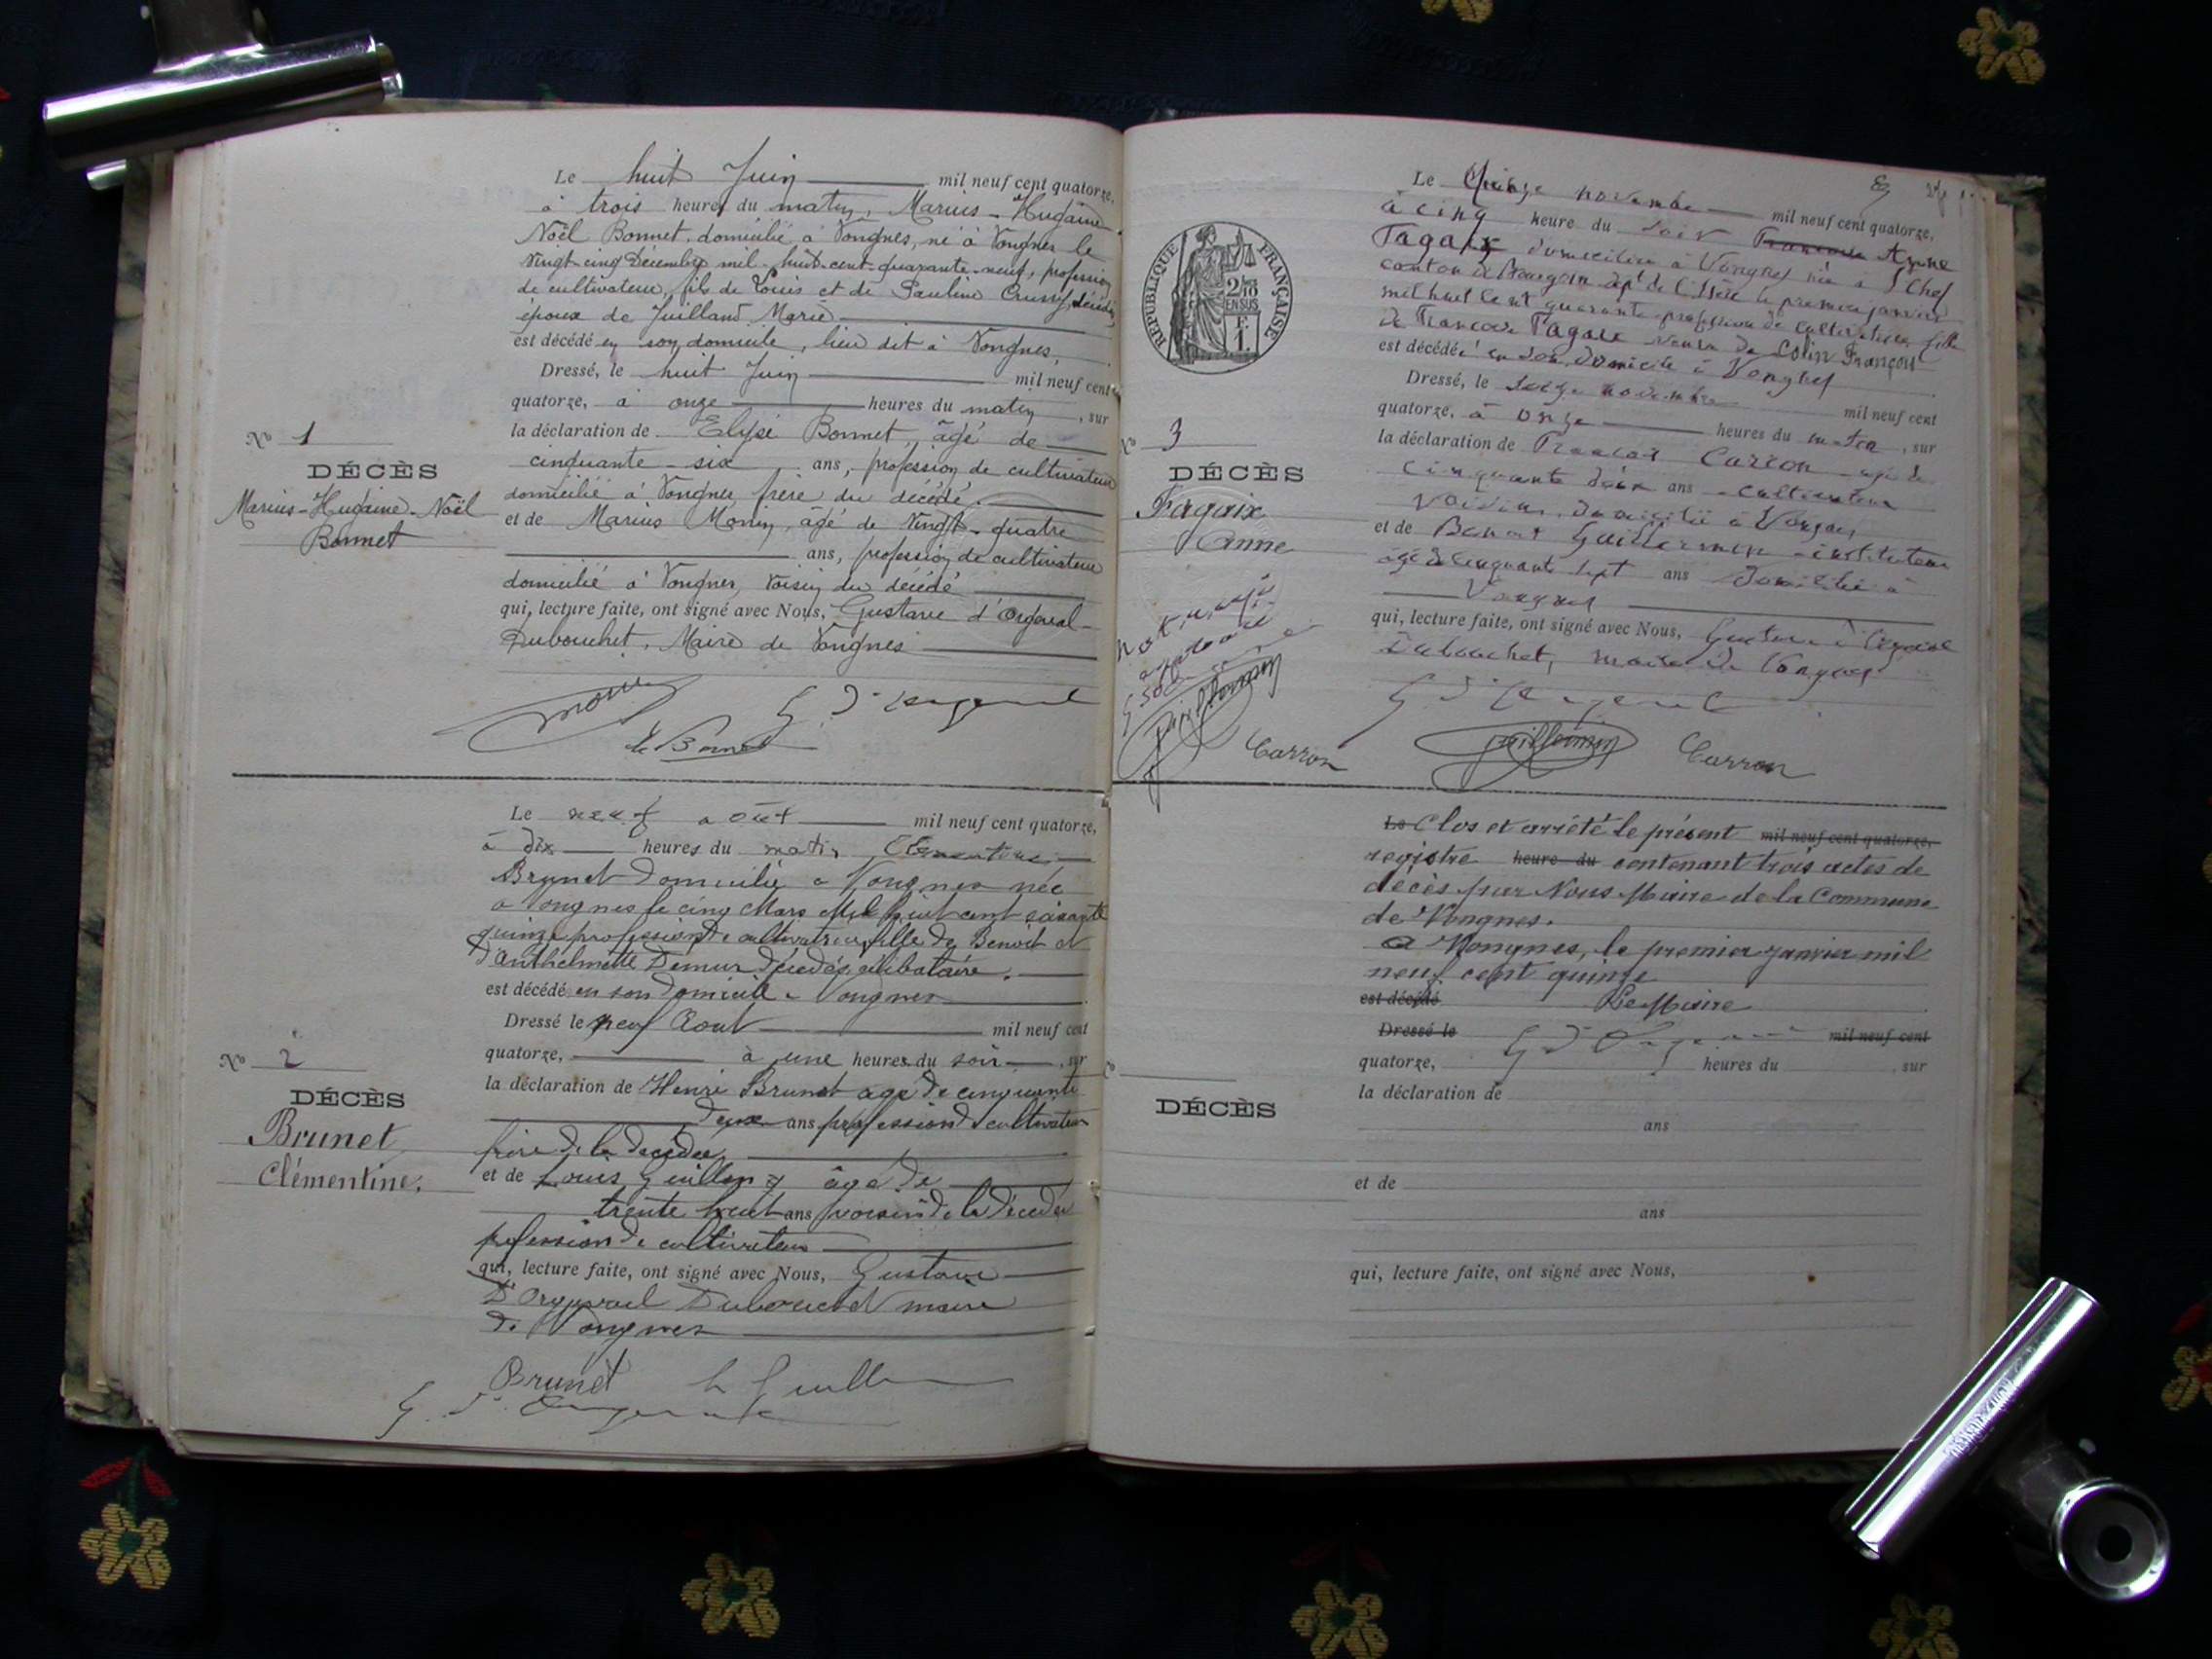 Le huit Juin mil neuf cent quatorze,
à trois heures du matin, Marius-Hugaine
Noël Bonnet, domicilié à Vongnes, né à Vongnes le
vingt-cinq Décembre mil-huit-cent-quarante-neuf, profession
de cultivateur, fils de Louis et de Pauline décédés,
époux de Juilland Marie
est décédé en son domicile, lieu dit à Vongnes,
Dressé, le huit Juin mil neuf cent
quatorze, à onze heures du matin, sur
la déclaration de Elysé Bonnet, âgé de
cinquante-six ans, profession de cultivateur
domicilié à Vongnes, frère du décédé.
et de Marius Monin, âgé de vingt-quatre
ans, profession de cultivateur
domicilié à Vongnes, voisin du décédé
qui, lecture faite, ont signé avec Nous, Gustave d'Orgeval-
Dubouchet, Maire de Vongnes
Nº 1
DÉCÈS
Marius-Hugaine-Noël
Bonnet
Le neuf août mil neuf cent quatorze,
à dix heures du matin Clémentine
Brunet domicilié à Vongnes née
à Vongnes le cinq Mars Mil huit cent soixante
quinze profession de cultivatrice, fille de Benoit et
d'Anthelmette Demur décédés, célibataire.
est décédé en son domicile à Vongnes
Dressé le neuf Aout mil neuf cent
quatorze, à une heures du soir, sur
la déclaration de Henri Brunet agé de cinquante
deux ans profession de cultivateur
frère de la décédée,
et de Louis Guilland âgé de
trente huit ans voisin de la décédée
profession de cultivateur
qui, lecture faite, ont signé avec Nous, Gustave
D'Orgeval Dubouchet maire
de Vongnes
Brunet L Guilland
G. d'Orgeval
Nº 2
DÉCÈS
Brunet
Clémentine.
RÉPUBLIQUE FRANÇAISE
2/10
EN SUS
1 F.
Le Quinze novembre mil neuf cent quatorze,
à cinq heure du soir Francoise Anne
Fagaix domiciliée à Vongnes née à St Chef
canton de Bourgoin dpt de l'Isère le premier janvier
mil huit cent quarante profession de cultivatrice, fille
de Francois Fagaix veuve de Colin François
est décédée en son domicile à Vongnes
Dressé, le seize novembre mil neuf cent
quatorze, à onze heures du matin, sur
la déclaration de Francois Carron agé de
cinquante deux ans cultivateur
voisin, domicilié à Vongnes
et de Benoit Guillermin instituteur
âgé de cinquante sept ans domicilié à
Vongnes
qui, lecture faite, ont signé avec Nous, Gustave d'Orgeval
Dubouchet, maire de Vongnes
G d'Orgeval
Guillermin Carron
Nº 3
DÉCÈS
Fagaix
Anne
Guillermin
Carron
Le Clos et arrêté le présent mil neuf cent quatorze,
registre heure du contenant trois actes de
décès par Nous Maire de la Commune
de Vongnes.
A Vongnes, le premier janvier mil
neuf cent quinze
est décédé Le Maire
Dressé le G d'Orgeval mil neuf cent
quatorze, heures du , sur
la déclaration de
ans
et de
ans
qui, lecture faite, ont signé avec Nous,
Nº
DÉCÈS